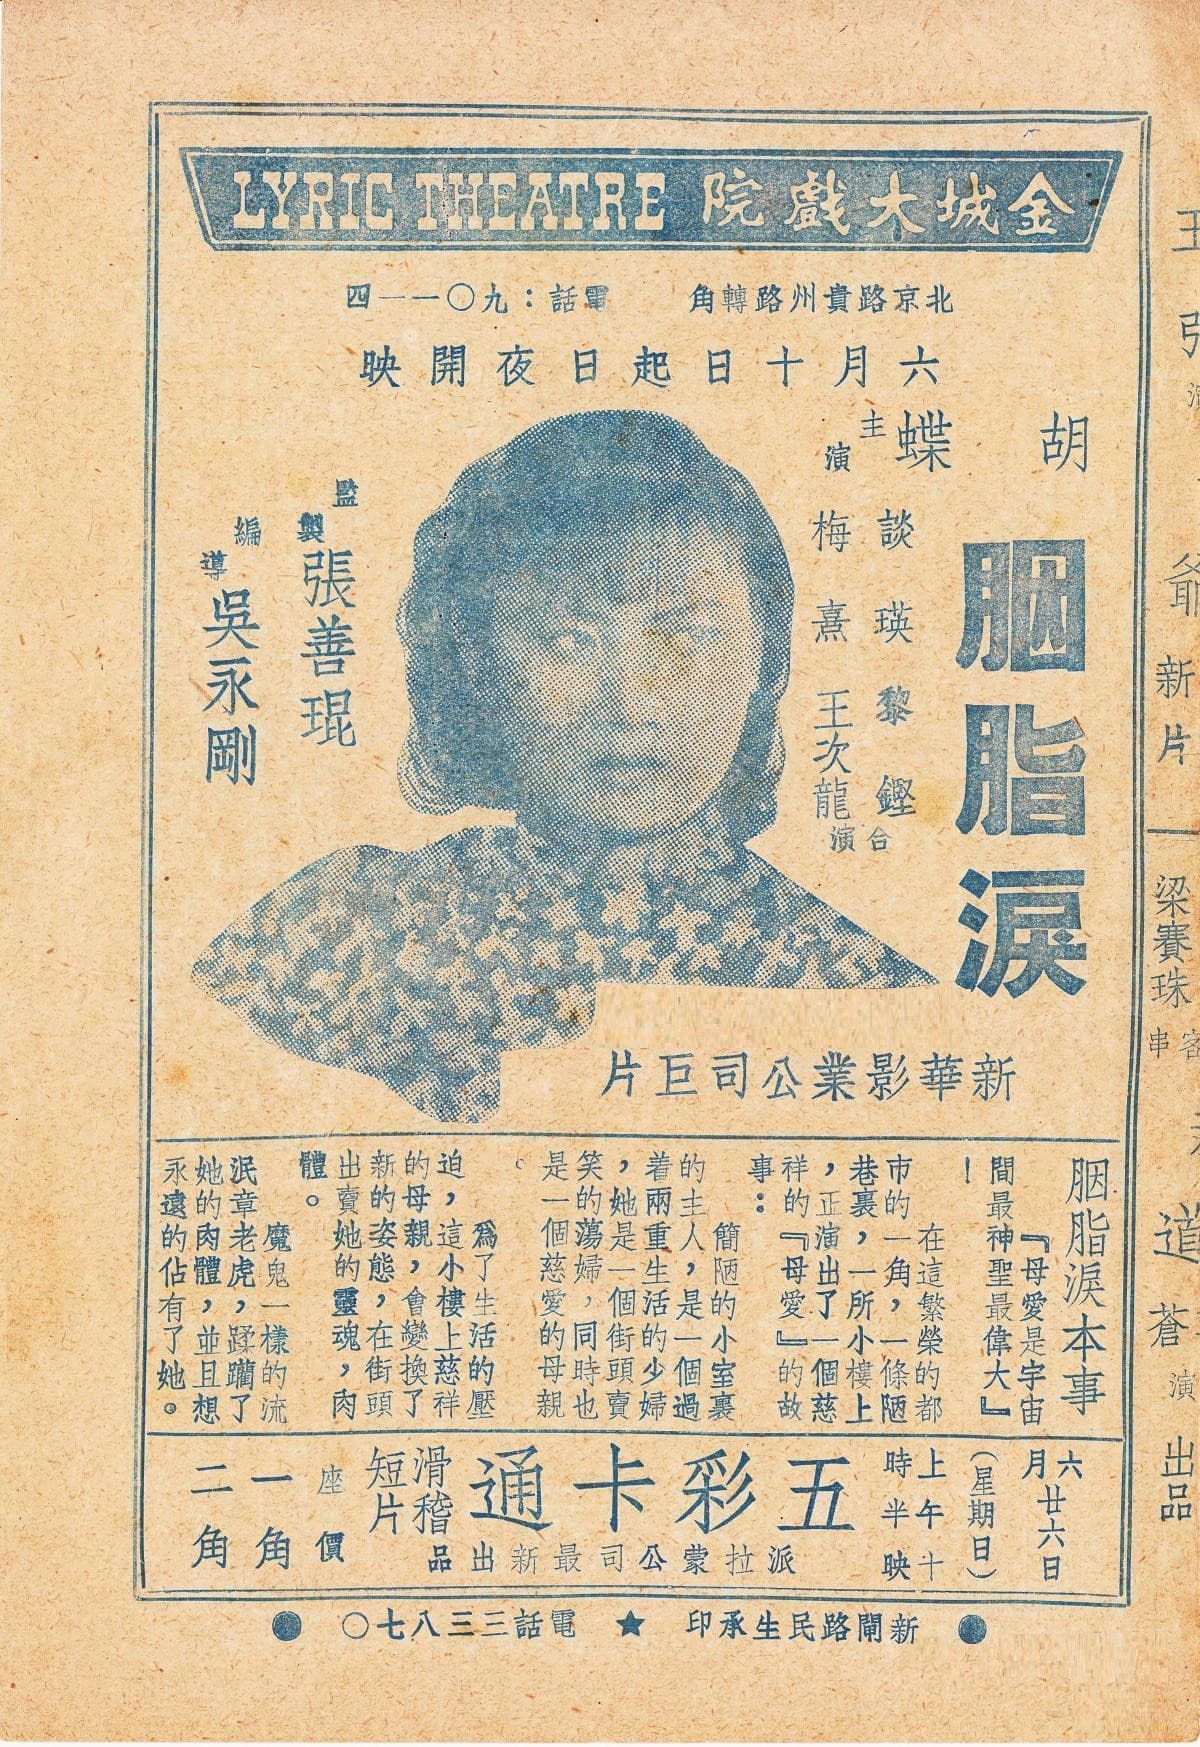 金城大戲院 LYRIC THEATRE
北京路貴州路轉角 電話：九〇一一四
六月十日起日夜開映
胡蝶
主演
談瑛 黎鏗
梅熹 王次龍
合演
胭脂淚
監製
張善琨
編導
吳永剛
新華影業公司巨片
胭脂淚本事
『母愛是宇宙
間最神聖最偉大』
！
在這繁榮的都
市的一角，一條陋
巷裏，一所小樓上
，正演出了一個慈
祥的『母愛』的故
事：
簡陋的小室裏
的主人，是一個過
着兩重生活的少婦
，她是一個街頭賣
笑的蕩婦，同時也
是一個慈愛的母親
。
爲了生活的壓
迫，這小樓上慈祥
的母親，會變換了
新的姿態，在街頭
出賣她的靈魂，肉
體。
魔鬼一樣的流
泯章老虎，蹂躪了
她的肉體，並且想
永遠的佔有了她。
六月廿六日
（星期日）
上午十
時半映
五彩卡通
滑稽
短片
派拉蒙公司最新出品
座價
一角
二角
● 新閘路民生承印 ★ 電話三三八七〇 ●
爺
新片
梁賽珠
客串
道
蒼
演
出品